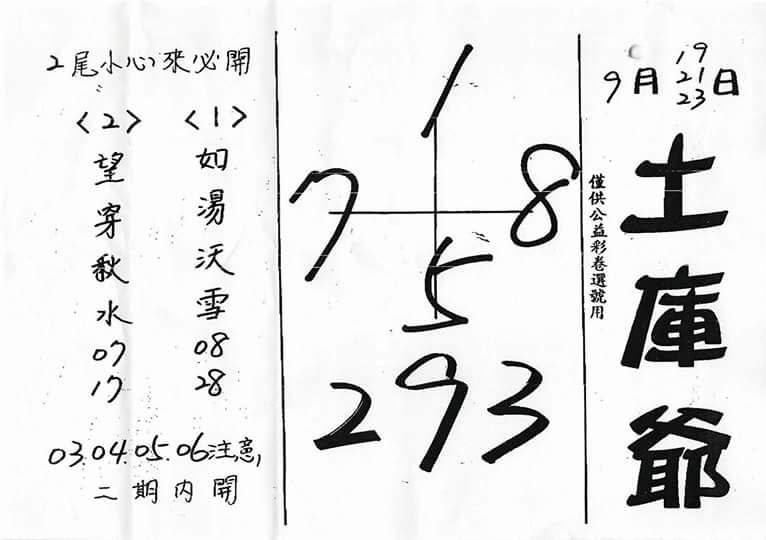 9月 19 21 23 日
土庫爺
僅供公益彩卷選號用
1
7 8
5
293
2尾小心來必開
<1>
如湯沃雪
08
28
<2>
望穿秋水
07
17
03.04.05.06注意,
二期內開